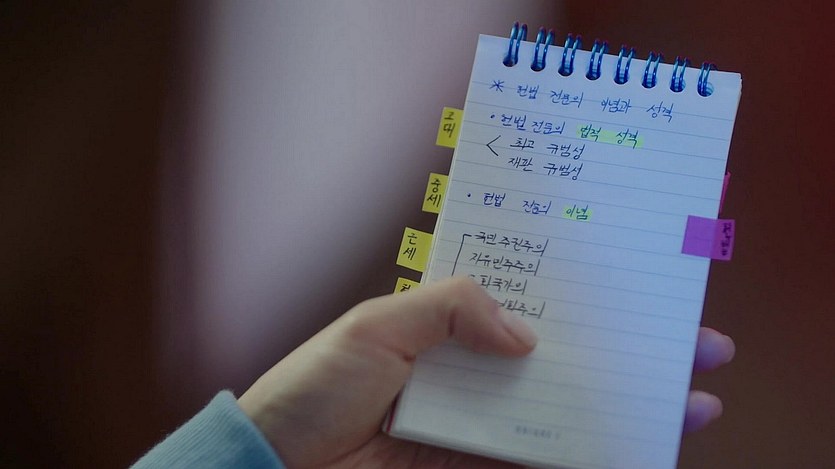 * 헌법 전문의 이념과 성격
• 헌법 전문의 법적 성격
최고 규범성
재판 규범성
• 헌법 전문의 이념
국민주권주의
자유민주주의
회국가의
고대
중세
근세